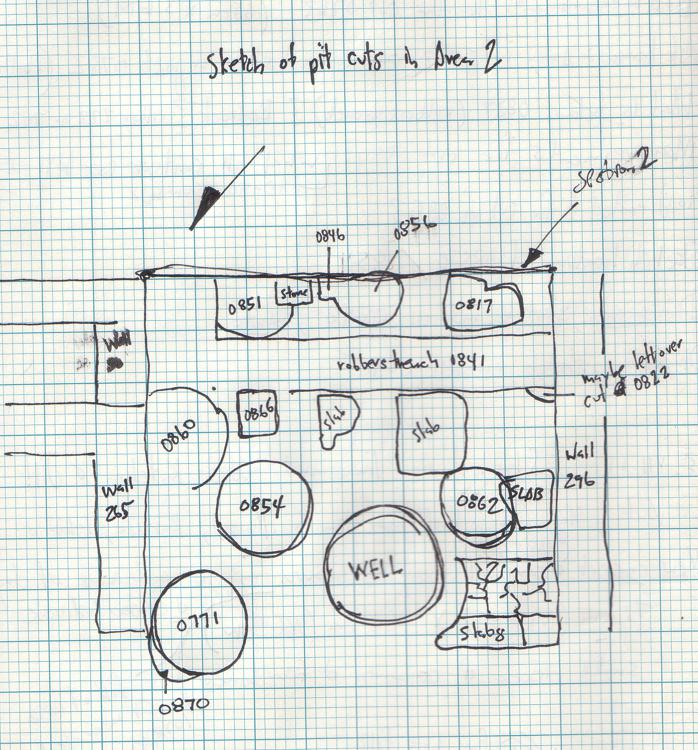 Sketch of pit cuts in Area 2
Section 2
0856
0846
0851
Stone
0817
Wall
robbers trench 0841
maybe leftover
cut @ 0822
0860
0866
slab
slab
Wall
296
Wall
265
0854
0862
SLAB
WELL
0771
Slabs
0870